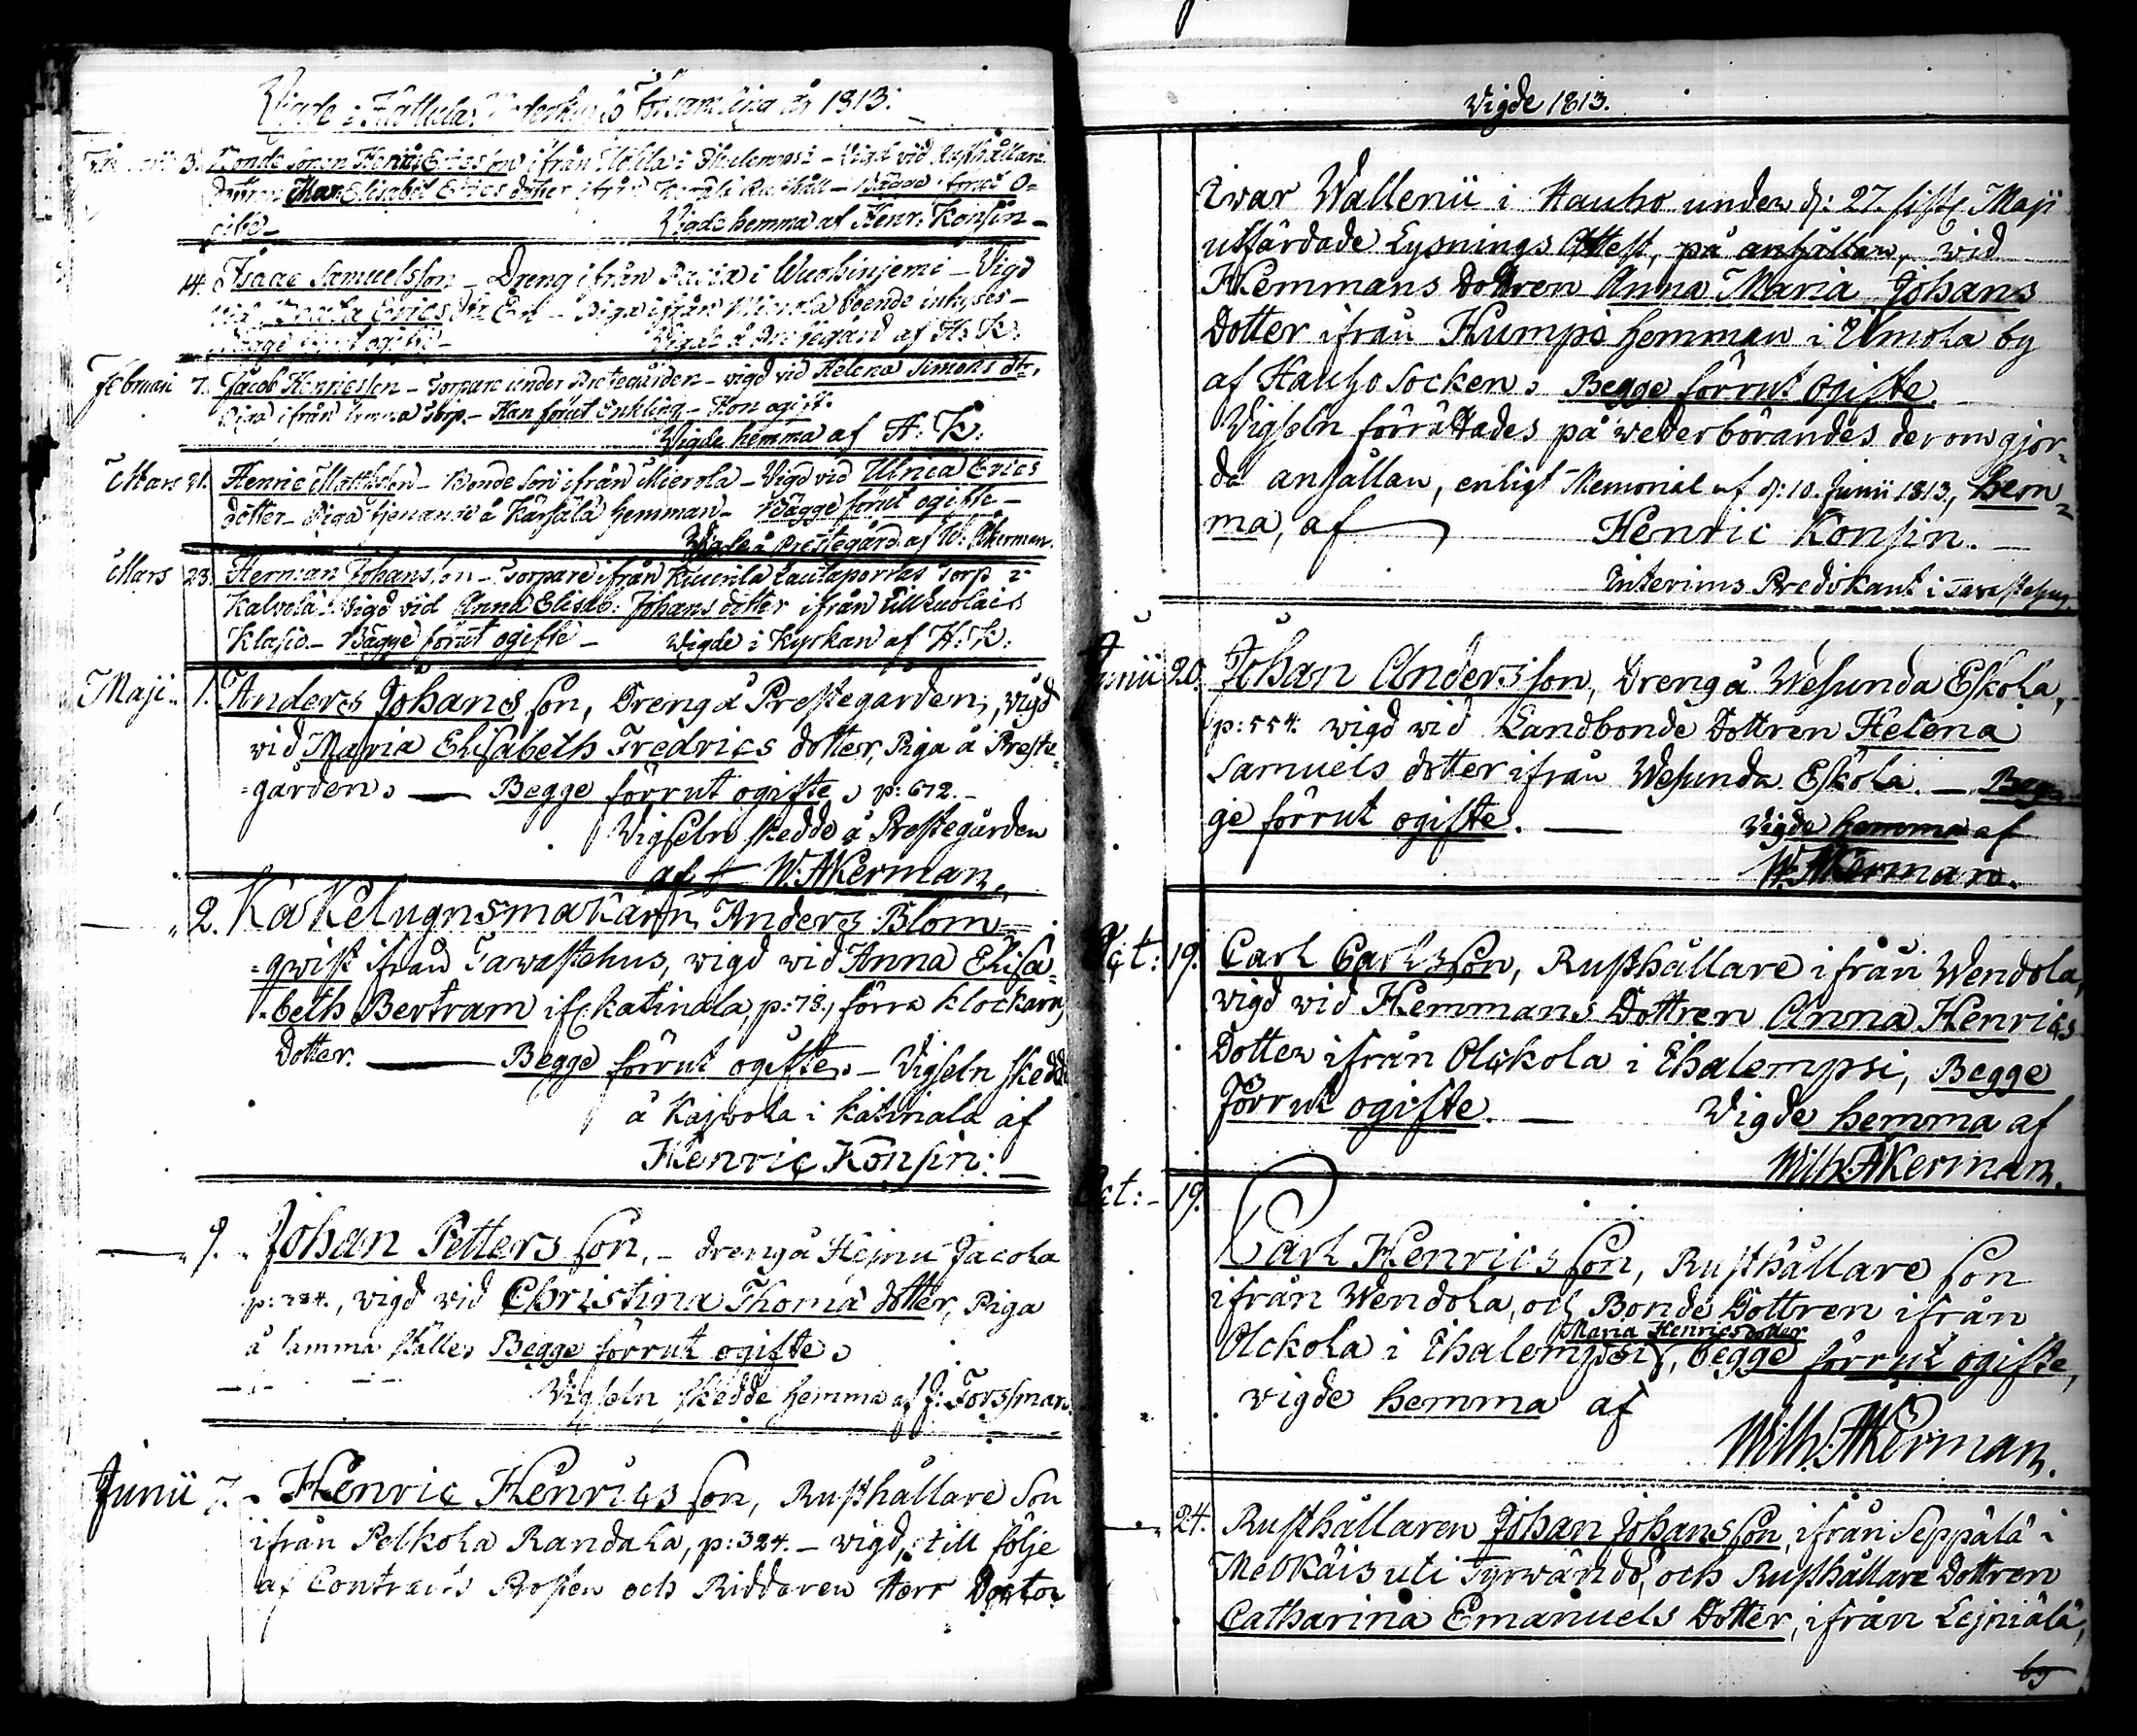 Vigde i Hattula Församling år 1813.
3. Bonde Sonen Henric Ericsson ifrån i Ihalempsi – Vigd vid Rusthållare
dottren Maria Elisabet Erics dotter ifrån Rusthåll – Bägge förut O-
gifte – Vigde hemma af Henr: Konsin –
14. Isaac Samuelsson – Dreng ifrån i Wuohinjemi – Vigd
vid Erics dr – Piga ifrån Mierola boende inhyses –
Bägge förut ogifte – Vigde å Prestegård af H: K:
Februari 7. Jacob Henricsson – Torpare under Prestegården – vigd vid Helena Simons dr,
Piga ifrån samma Torp. – Han förut Enkling – Hon ogift.
Vigde hemma af H: K:
Mars 21. Henric Mattsson – Bonde Son ifrån Mierola – Vigd vid Ulrica Erics
dotter – Piga tjenande å Kärjälä hemman – Bägge förut ogifte –
Vigde å Prestegård af W: Åkerman.
Mars 23. Herman Johansson – Torpare ifrån Lautaporras Torp i
Kalvola: Vigd vid Anna Elisab: Johans dotter ifrån
Klasis – Bägge förut ogifte – Wigde i Kyrkan af H: K:
Maji 1. Anders Johansson, Dreng å Prestegården, vigd
vid Maria Elisabeth Fredrics dotter, Piga å Preste-
gården, — Begge förrut ogifte, p: 672. –
Vigseln skedde å Prestegården
af — W. Åkerman.
— „ 2. Kakelugnsmakarn Anders Blom-
=qwist ifrån Tawastehus, wigd wid Anna Elisa-
=beth Bertram if: Katinala, p: 78, förra klockarn
Dotter. — Begge förrut ogifte. – Vigseln skedde
å Kajwola i Katinala af
Henric Konsin: —
— „ 9. Johan Petters son, – dreng å Hejnu Jacola
p: 384., vigd vid Christina Thomæ dotter, Piga
å samma ställe, Begge förrut ogifte,
Vigseln skedde hemma af J: Forssman.
Junii 7. Henric Henrics son, Rusthållare Son
ifrån Pelkola Randala, p: 324. – vigd, till följe
af Contracts Prosten och Riddaren Herr Doctor
Vigde 1813.
Iwar Wallenii i Hauho under d: 27. sistl: Maji
utfärdade Lysnings Attest, på anhållan, wid
Hemmans Dottren Anna Maria Johans
Dotter ifrån Kumpi hemman i Umola by
af Hauho Socken, Begge förrut Ogifte.
Vigseln förrättades på wederbörandes derom gjor-
da anhållan, enligt Memorial af d: 10. Junii 1813, hem-
ma, af — Henric Konsin. —
Interims Predikant i Tavastehus
Junii 20. Johan Andersson, Dreng å Wesunda Eskola,
p: 554. wigd vid Landbonde Dottren Helena
Samuels dotter ifrån Wesunda Eskola. — Beg-
ge förrut ogifte. — Vigde hemma af
W. Åkerman.
Oct: 19. Carl Carlsson, Rusthållare ifrån Wendola,
vigd vid Hemmans Dottren Anna Henrics
Dotter ifrån Olckola i Ihalempsi, Begge
förrut ogifte. — Vigde hemma af
Wilh: Åkerman.
Oct: – 19. Carl Henrics son, Rusthållare son
ifrån Wendola, och Bonde Dottren ifrån
Maria Henricsdotter
Olckola i Ihalempsi, begge förrut ogifte,
vigde hemma af
Wilh: Åkerman.
— „ 24. Rusthållaren Johan Johansson, ifrån Seppälä i
Melkäis uti Tyrwändö, och Rusthållare Dottren
Catharina Emanuels Dotter, ifrån Lejniälä,
by